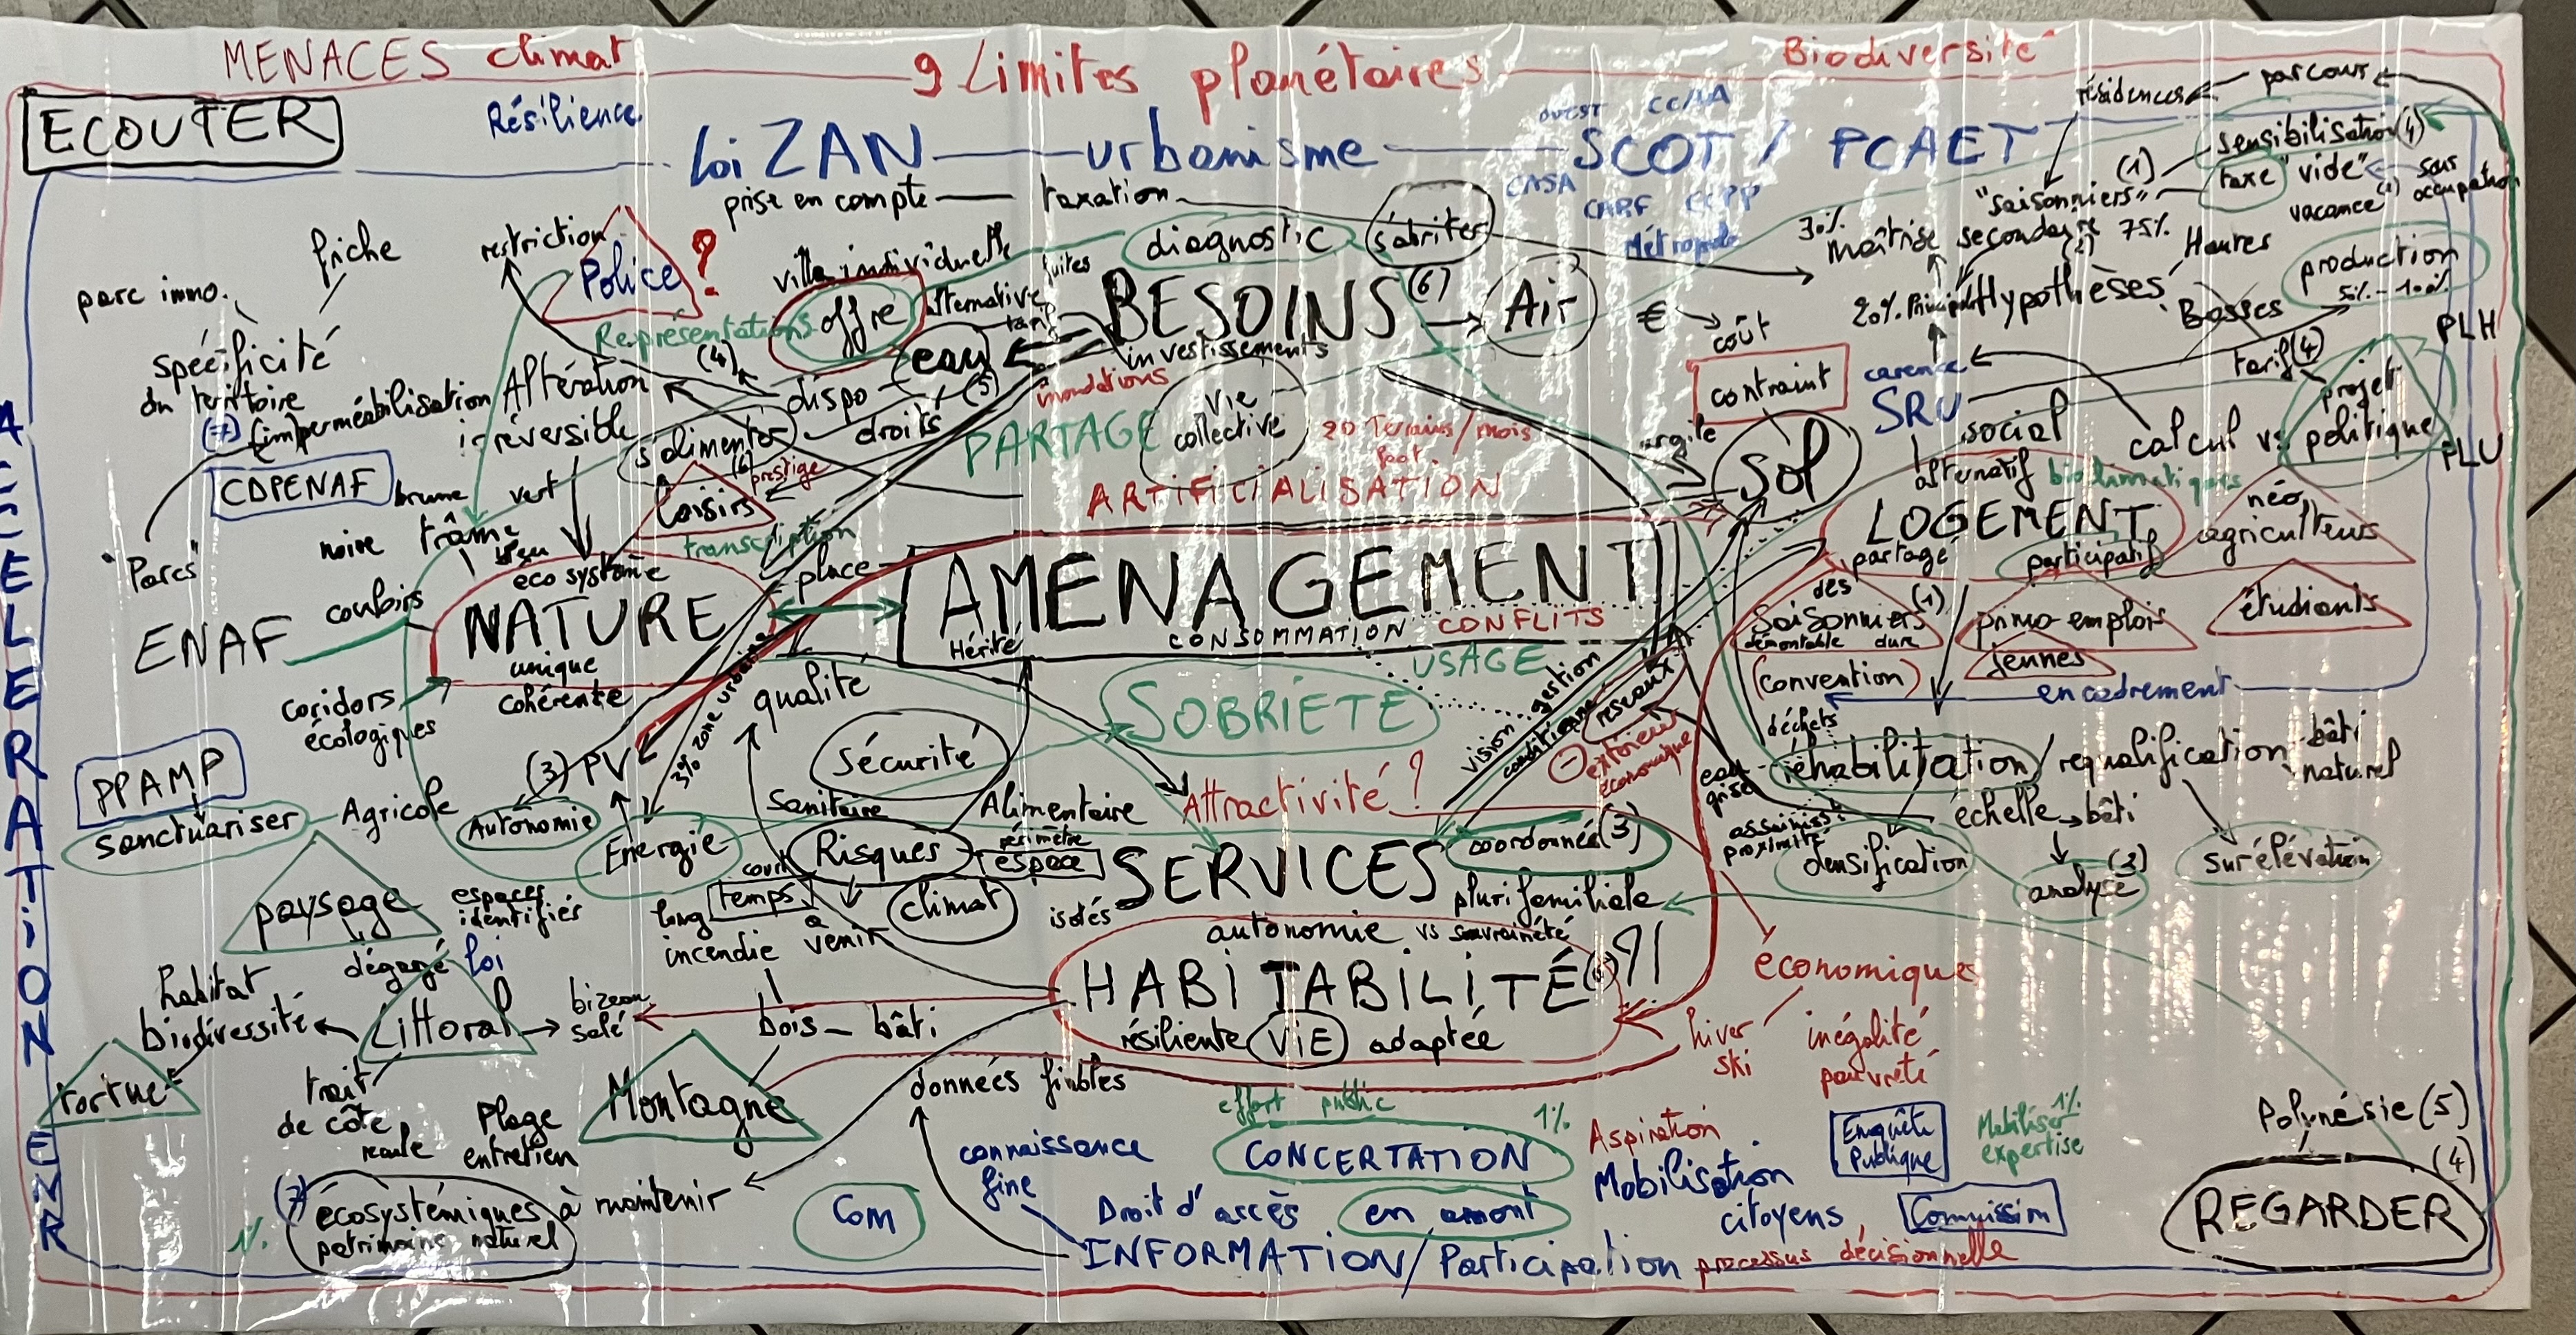 MENACES climat
9 Limites planétaires
Biodiversité
ECOUTER
Résilience
loi ZAN
urbanisme
OUEST
SCOT / PCAET
CASA
CARF CCPP
Métropole
résidences
parcours
sensibilisation (4)
taxe "vide"
sans
occupation
vacance
(1)
"saisonniers"
30%
maîtrise secondaire 75%
20% Principale
Hypothèses
Hautes
Basses
production
5% - 100%
prise en compte
taxation
friche
parc immo.
spécificité
du territoire
(7) (im)perméabilisation
restriction
Police ?
Représentations
villa individuelle
offre
alternative
fuites
tarif
diagnostic
s'abriter
BESOINS (6)
investissements
Air
€
coût
eau
(4)
dispo
(5)
droits
inondations
Altération
irréversible
s'alimenter
(6)
prestige
Loisirs
PARTAGE
vie
collective
20 Terrains/mois
foot
ARTIFICIALISATION
contraint
argile
Sol
carence
SRU
social
calcul vs politique
projet
tarif (4)
PLH
PLU
alternatif
bioclimatiques
LOGEMENT
partagé
participatif
néo
agriculteurs
CDPENAF
"Parcs"
brune
vert
noire
trâme
bleu
transcription
éco système
NATURE
unique
cohérente
ENAF
couloirs
coridors
écologiques
place
AMENAGEMENT
Hérité
CONSOMMATION CONFLITS
USAGE
SOBRIÉTÉ
des
saisonniers (1)
démontable dure
(convention)
primo-emplois
Jennes
étudiants
encadrement
déchets
réhabilitation / requalification
bâti
naturel
échelle
bâti
analyse (3)
surélévation
densification
eau
grise
assainisst
proximité
vision gestion
conditionne
réseaux
extérieur
économique
qualité
3% zone urbaine
(3) PV
Autonomie
Energie
PPAMP
sanctuariser
Agricole
paysage
dégagé
espaces
identifiés
Sécurité
Sanitaire
Alimentaire
Risques
périmètre
espace
court
temps
long
climat
à
venir
incendie
Attractivité ?
SERVICES
coordonnée (3)
isolés
plurifamiliale
autonomie vs souvraineté
HABITABILITÉ
résiliente VIE adaptée
économiques
hiver
ski
inégalité
pauvreté
habitat
biodiversité
loi
Littoral
salé
tortue
trait
de côte
Plage
entretien
Montagne
bois - bâti
données fiables
(7) écosystémiques
patrimoine naturel
à maintenir
1%
Com
connaissance
fine
effort public
1%
CONCERTATION
Droit d'accès
en amont
INFORMATION / Participation
processus décisionnelle
Aspiration
Mobilisation
citoyens
Enquête
Publique
Commission
1%
Mobiliser
expertise
Polynésie (5)
(4)
REGARDER
ENR